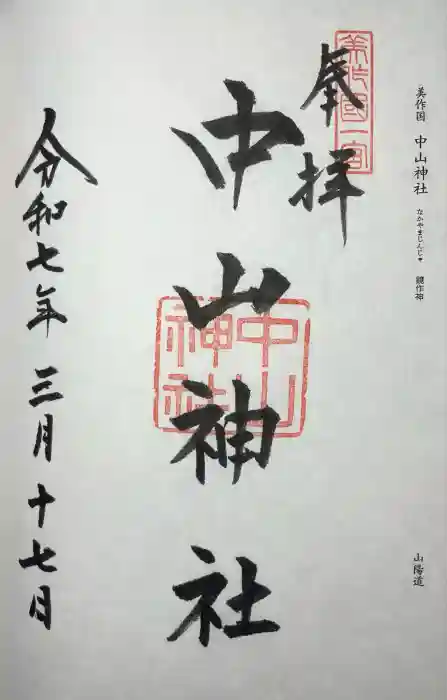 美作国 中山神社 なかやまじんじゃ 鏡作神
山陽道
美作國一宮
奉拝
中山神社
中山神社
令和七年三月十七日